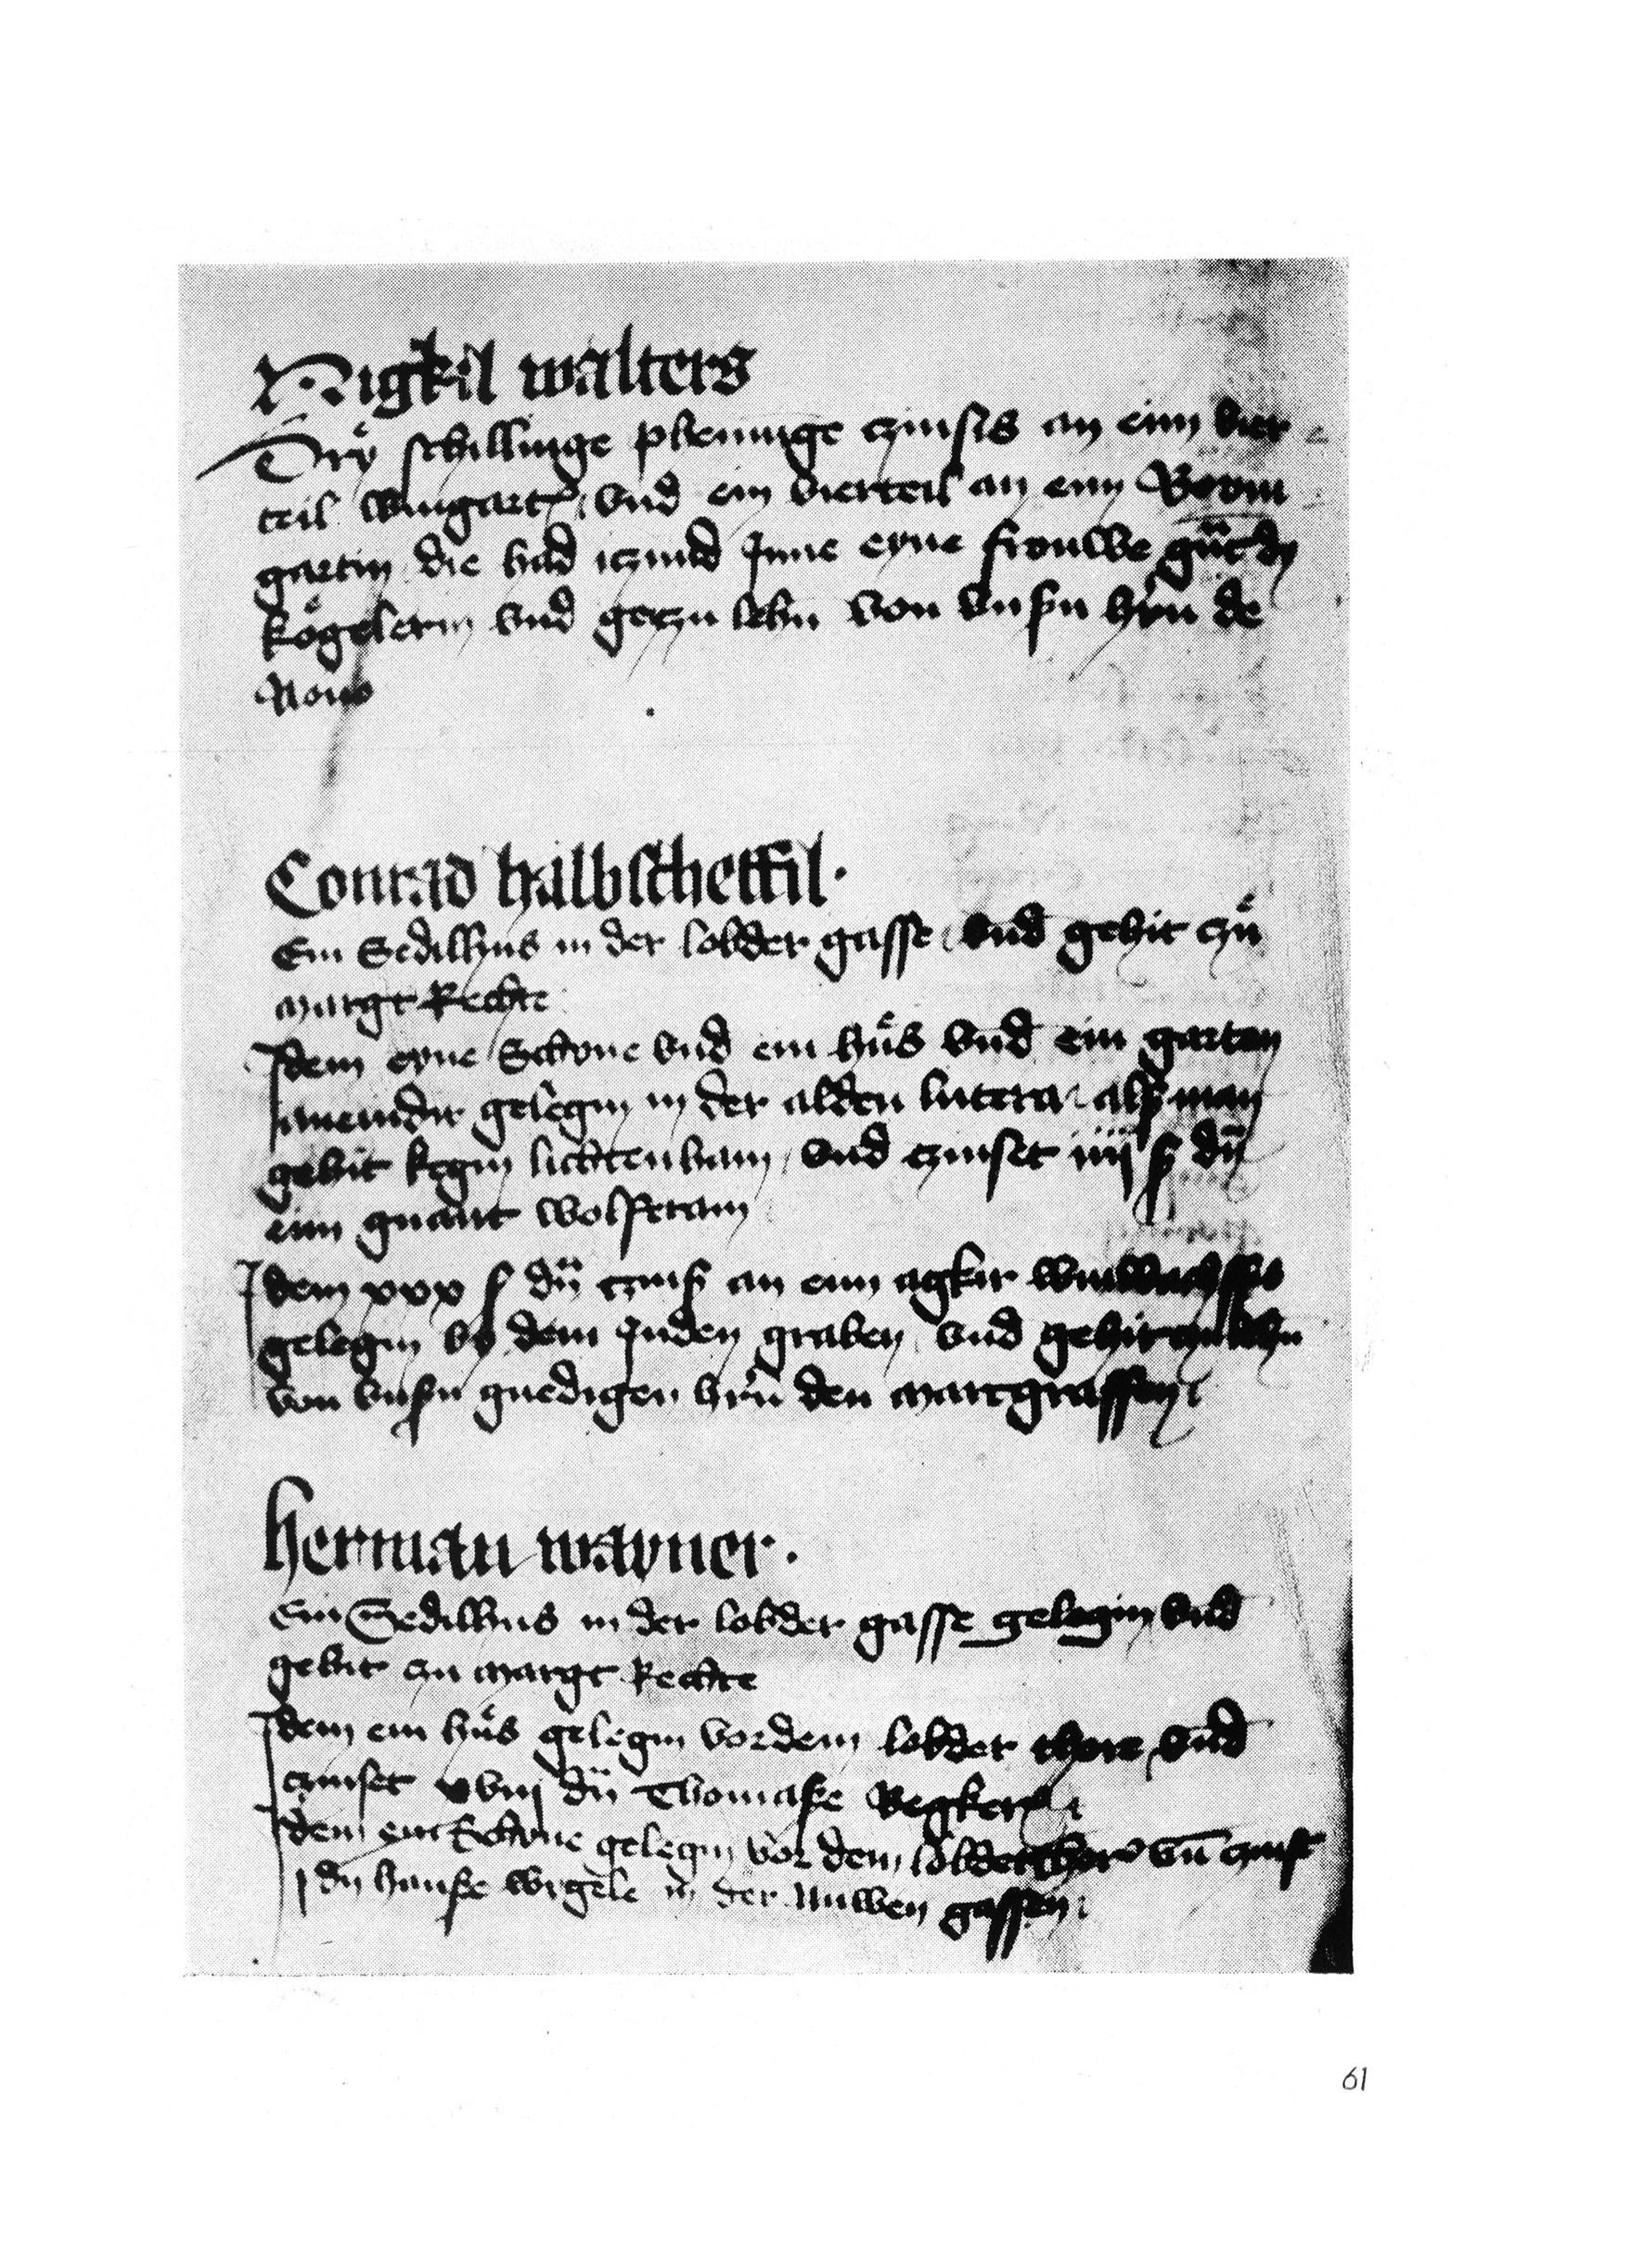 Nigkil walters
Drÿ schillinge phennige czinsis an eim vier
teil wingart vnd ein vierteil an eim Bovm
gartin die had iczund Inne eyne frouwe
kögelerin vnd get zu lehn von vnsn hrn de
Conrad halbscheffil.
Ein Sedilhus in der lobder gasse vnd gehit czů
margt Rechte
Idem eyne Schvne vnd ein hůs vnd ein garten
aneindir gelegin in der alden lutera als man
gehit kegin lichtenhain vnd czinset iiij ß dn̄
eim gnant wolfferam
Idem xxx ß dn̄ czinß an eim agkir winwachsses
gelegin by dem Juden graben vnd gehit czu lehn
von vnsn gnedigen hrn den marcgraffen
herman wayner.
Ein Sedilhus in der lobder gasse gelegin vnd
gehit czu margt Rechte
Idem ein hůs gelegin vordem lobder thore vnd
czinset xviij dn̄ Thomaße Begker
Idem ein Schvne gelegin vor dem lobderthor vn̄ czinst
j dn̄ hanße wigele in der Nuwen gassen
61